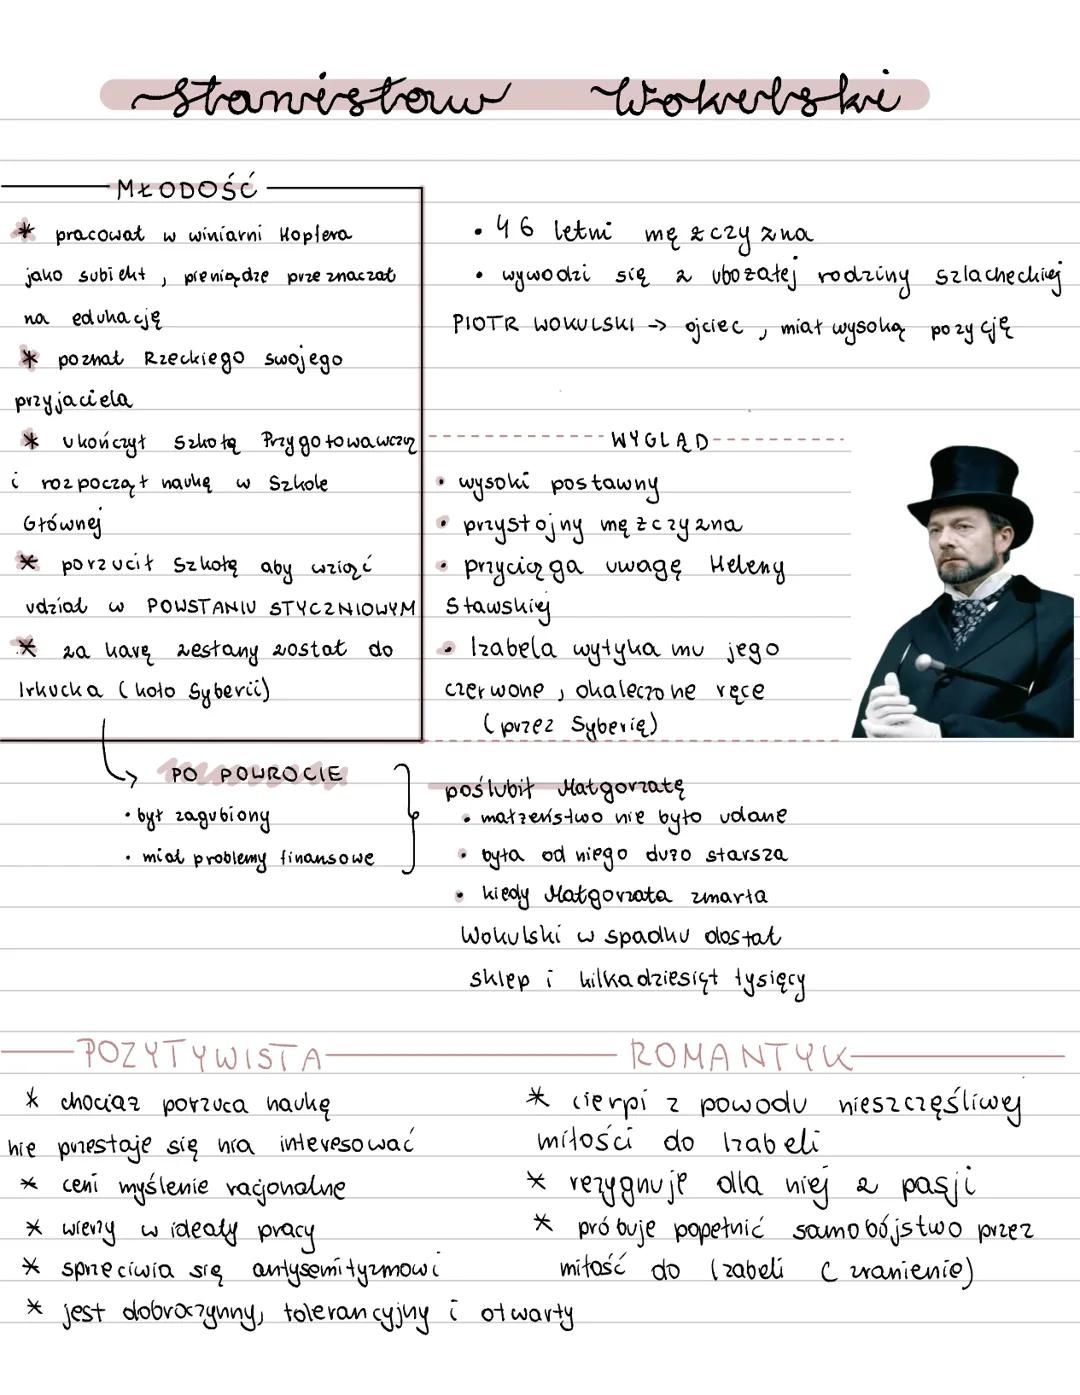 Stanisław Wokulski
MŁODOŚĆ
* pracował w winiarni Hopfera
jako subiekt, pieniądze przeznaczał
na edukację
* poznał Rzeckiego swojego
przyjaciela
* ukończył Szkołę Przygotowawczą
i rozpoczął naukę w Szkole
Głównej
* porzucił Szkołę aby wziąć
udział w POWSTANIU STYCZNIOWYM
* za karę zesłany został do
Irkucka (koło Syberii)
PO POWROCIE
• był zagubiony
• miał problemy finansowe
• 46 letni mężczyzna
• wywodzi się z ubożałej rodziny szlacheckiej
PIOTR WOKULSKI -> ojciec, miał wysoką pozycję
WYGLĄD
• wysoki postawny
• przystojny mężczyzna
• przyciąga uwagę Heleny
Stawskiej
• Izabela wytyka mu jego
czerwone, okaleczone ręce
(przez Syberię)
poślubił Małgorzatę
• małżeństwo nie było udane
• była od niego dużo starsza
• kiedy Małgorzata zmarła
Wokulski w spadku dostał
sklep i kilkadziesiąt tysięcy
POZYTYWISTA
* chociaż porzuca naukę
nie przestaje się nią interesować
* ceni myślenie racjonalne
* wierzy w ideały pracy
* sprzeciwia się antysemityzmowi
* jest dobroczynny, tolerancyjny i otwarty
ROMANTYK
* cierpi z powodu nieszczęśliwej
miłości do Izabeli
* rezygnuje dla niej z pasji
* próbuje popełnić samobójstwo przez
miłość do Izabeli (zranienie)